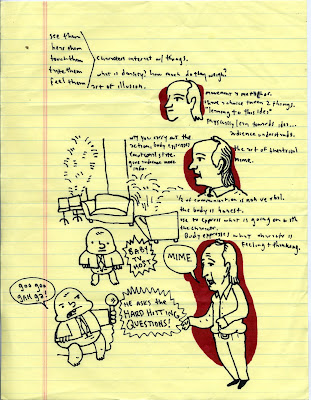 see them
hear them
touch them
taste them
feel them
characters interact w/ things.
what is density? how much do they weigh?
art of illusion.
movement & metaphor.
have a choice tween 2 things.
"leaning to the idea"
physically lean towards idea...
audience understands.
why you carry out the
action, body expresses
emotional state.
give audience more
info.
the art of theatrical
mime.
1/2 of communication is not verbal.
the body is honest.
use to express what is going on with
the character.
Body expresses what character is
feeling & thinking.
BABY
TV
HOST
MIME
goo goo
gah ga?
HE ASKS THE
HARD HITTING
QUESTIONS!